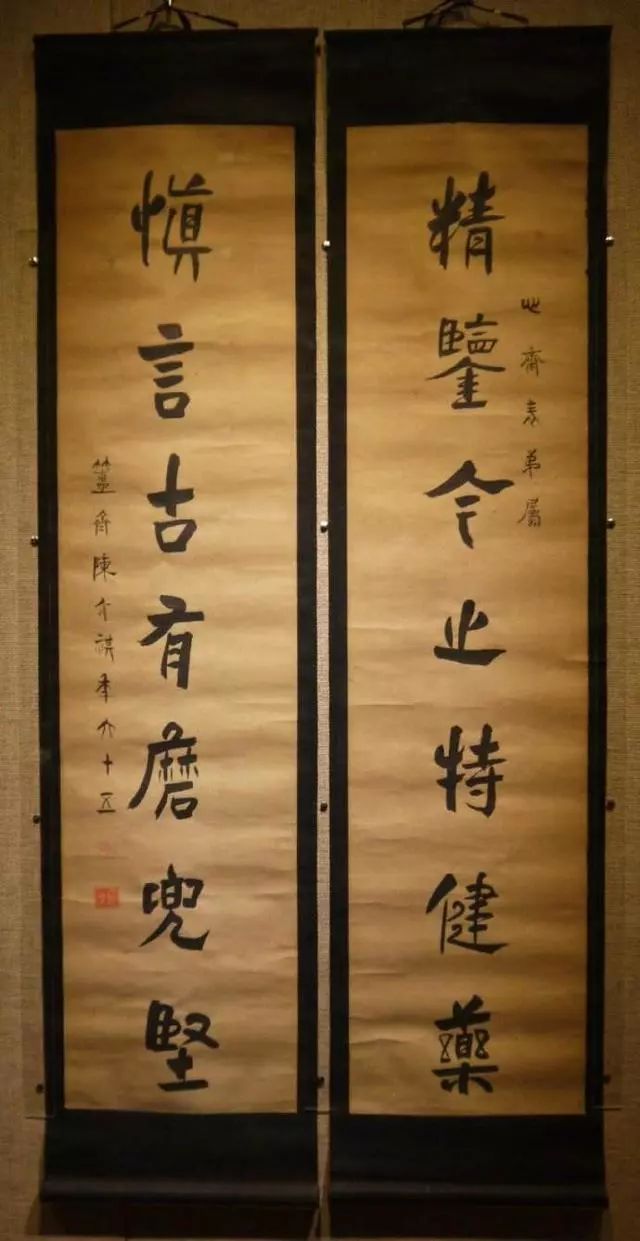 齋弟屬
精鑒今止特健藥
慎言古有磨兜堅
簠齋陳介祺年六十五